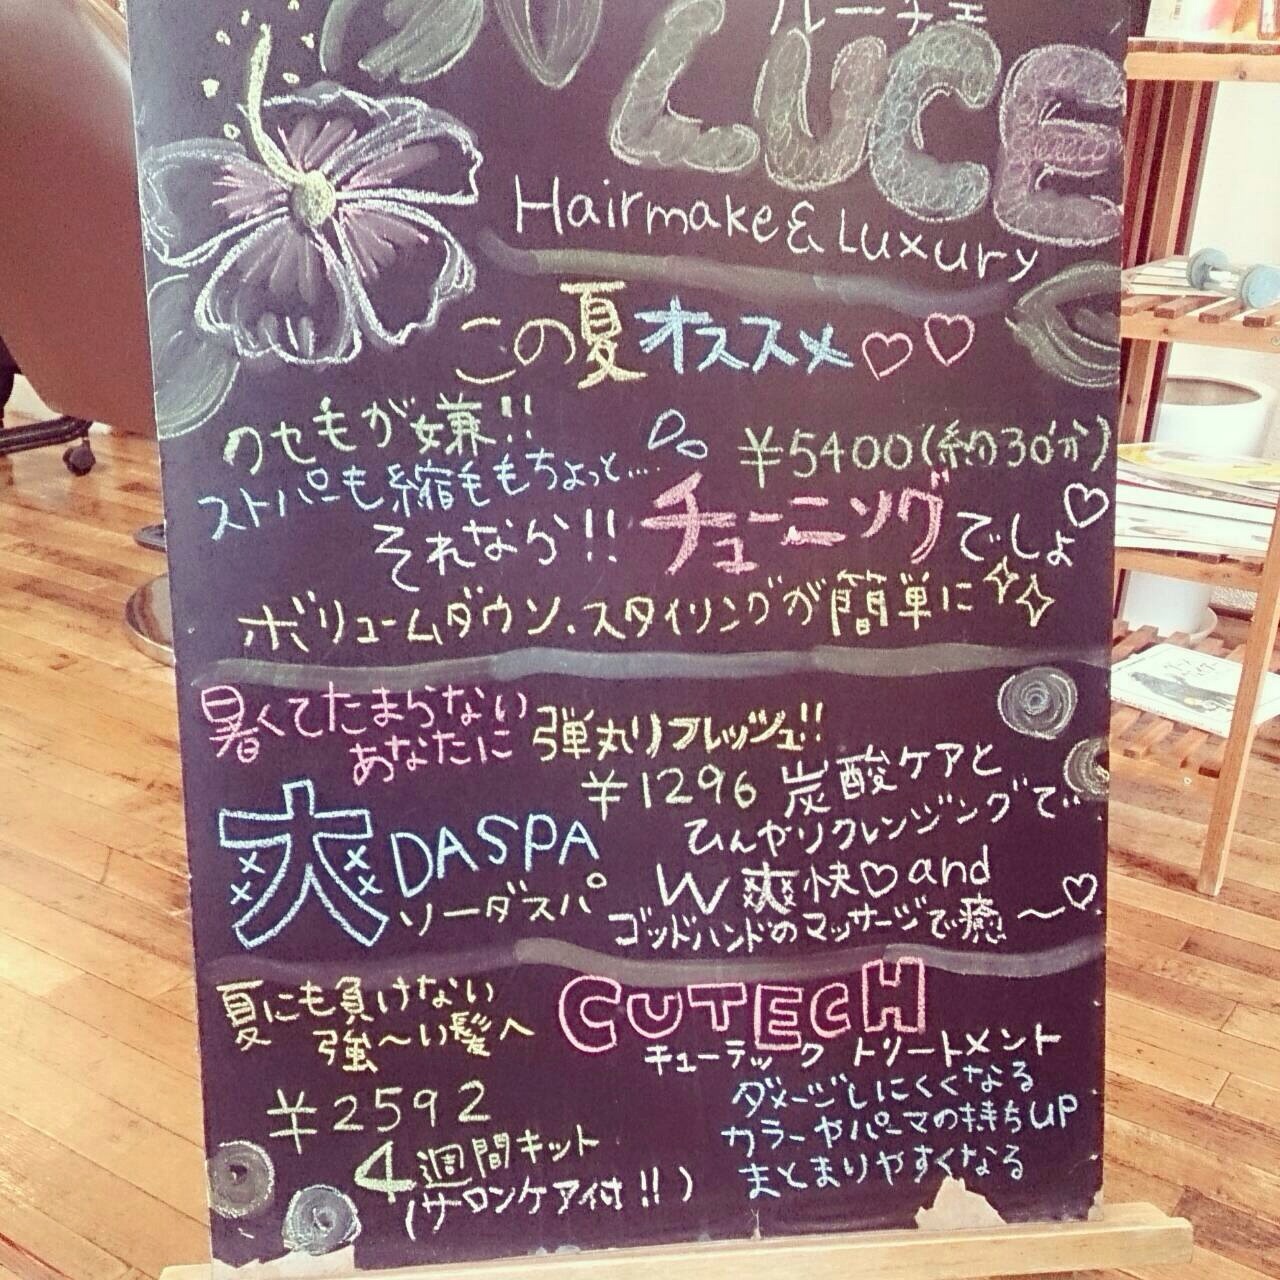 ルーチェ
LUCE
Hairmake & Luxury
この夏オススメ♡♡
クセ毛が嫌!!
ストパーも縮毛もちょっと…
¥5400(約30分)
それなら!! チューニングでしょ♡
ボリュームダウン、スタイリングが簡単に
暑くてたまらない
あなたに
弾丸リフレッシュ!!
¥1296
爽DASPA
ソーダスパ
炭酸ケアと
ひんやりクレンジングで…
W爽快♡and
ゴッドハンドのマッサージで癒〜♡
夏にも負けない
強〜い髪へ
CUTECH
キューテック トリートメント
¥2592
4週間キット
(サロンケア付!!)
ダメージしにくくなる
カラーやパーマの持ちUP
まとまりやすくなる